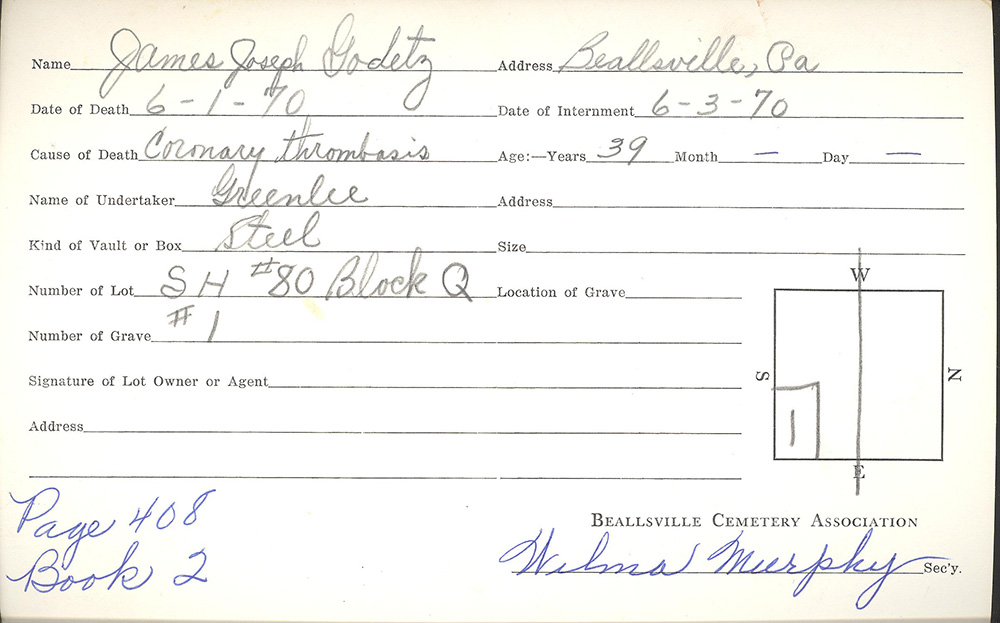 Name James Joseph Godetz Address Beallsville, Pa
Date of Death 6-1-70 Date of Internment 6-3-70
Cause of Death Coronary thrombasis Age:—Years 39 Month — Day —
Name of Undertaker Greenlee Address
Kind of Vault or Box Steel Size
Number of Lot SH #80 Block Q Location of Grave
Number of Grave #1
Signature of Lot Owner or Agent
Address
W
S
N
1
E
Page 408
Book 2
Beallsville Cemetery Association
Wilma Murphy Sec'y.